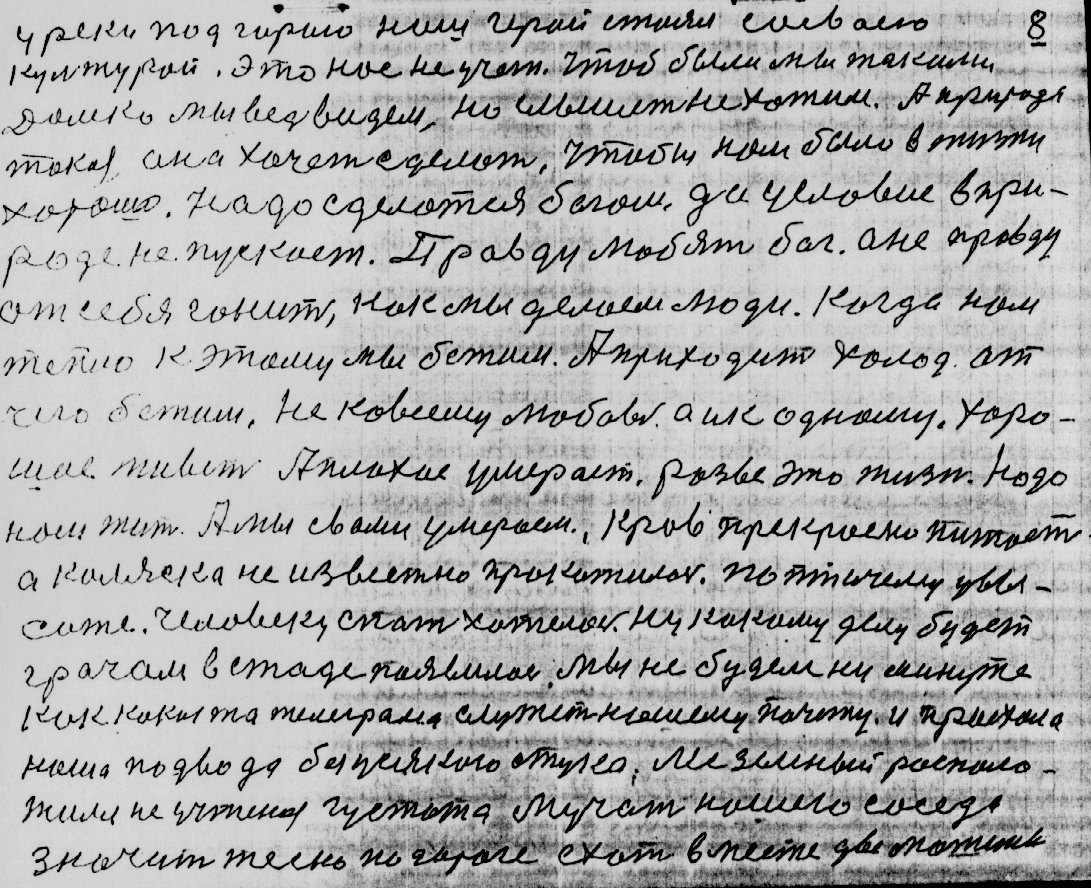 у реки под гарою наш герой стоял сосваею 8
културой. Это нос не учат. Чтоб были мы такими
Далико мы вед видем, но слышет не хотим. А природа
такая, ана хочет сделат, чтобы нам было в жизни
хорошо. Надо сделатся богом, да условие в при-
роде не пускает. Правду любят бог. а не правду
от себя гонит, как мы делаем люди. Когда нам
тепло к этому мы бежим. А приходит холод от
чего бежим, не ковсему любовь а ик одному. Хоро-
шае живет А плохое умерает, разве это жизн. Надо
нам жит. А мы сваи умераем. Кров прекрасно питает
а каляска не известно прокатилас. по птичему увы-
соте. Человеку спат хотелос. ни какому делу будет
грачам встаде паявилос. мы не будем ни минуте
как какая та телеграма служит нашему почету. и приехала
наша подвода безусякого стука,
жиля не учтеная густота мучат нашего соседа
значит тесно надароге ехат вместе две машины